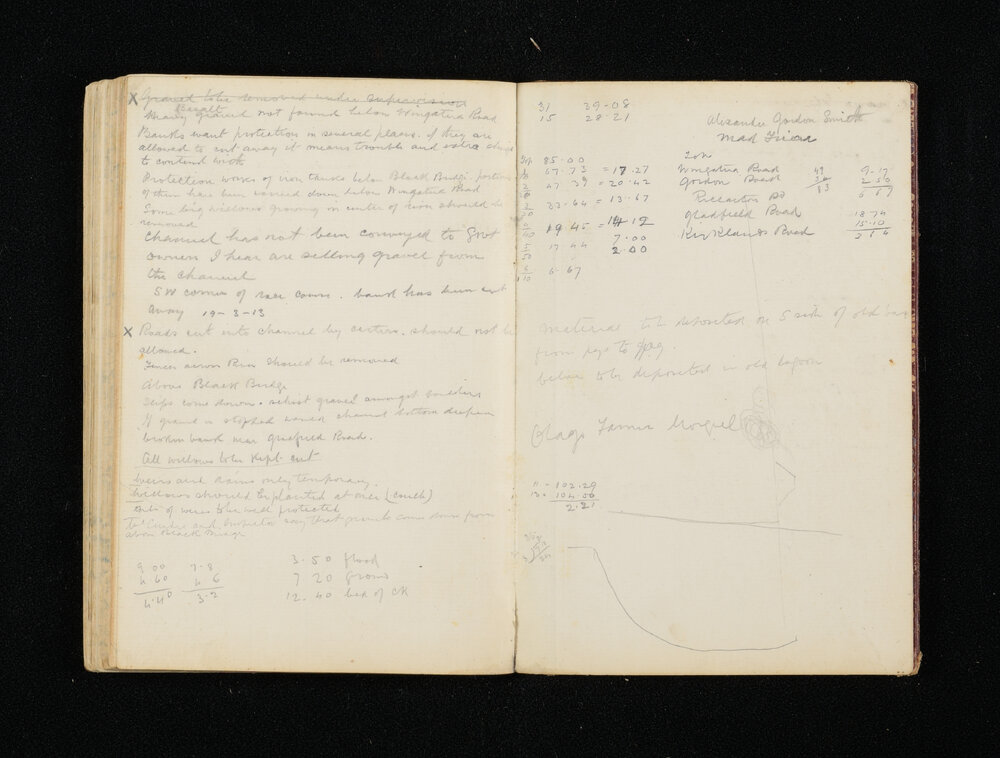 X Gravel to be removed under supervision
Basalt
Heavy gravel not found below Wingatui Road
Banks want protection in several places. If they are
allowed to cut away it means trouble and extra
to contend with
Protection works of iron tanks below Black Bridge. portion
of them have been carried down below Wingatui Road
Some big willows growing in center of river should be
removed
Channel has not been conveyed to Govt
owners I hear are selling gravel from
the channel
SW corner of race course. bank has been cut
away 19-3-13
X Roads cut into channel by carters. should not be
allowed.
Fences across River should be removed
Above Black Bridge
Slips come down. schist gravel amongst boulders
If gravel is stopped channel bottom deepen
broken bank near Road.
All willows to be kept cut
Weirs and dams only temporary.
Willows should be planted at once (South)
of weirs to be well protected
and say that come down from
above Black Bridge
9.00 7.8
4 60 4 6
4.40 3.2
3.50 flood
7 20 ground
12.40 bed of CK
31 39-08
15 28-21
Alexander Gordon Smith
Mad Friar
85.00
67.73 = 17.27
47 39 = 20.42
33.64 = 13.67
19.45 = 14 12
7.00
17.44 2.00
6.67
Wingatui Road
Gordon Road
Riccarton Rd
Gladfield Road
Kirklands Road
49
34
83
9.17
2.50
6 67
18 74
15.10
3 64
Material to be deposited on S side of old
from pegs to peg.
below to be deposited in old lagoon
Otago Farmer Mosgiel
11 - 102.29
13. 104.50
2.21